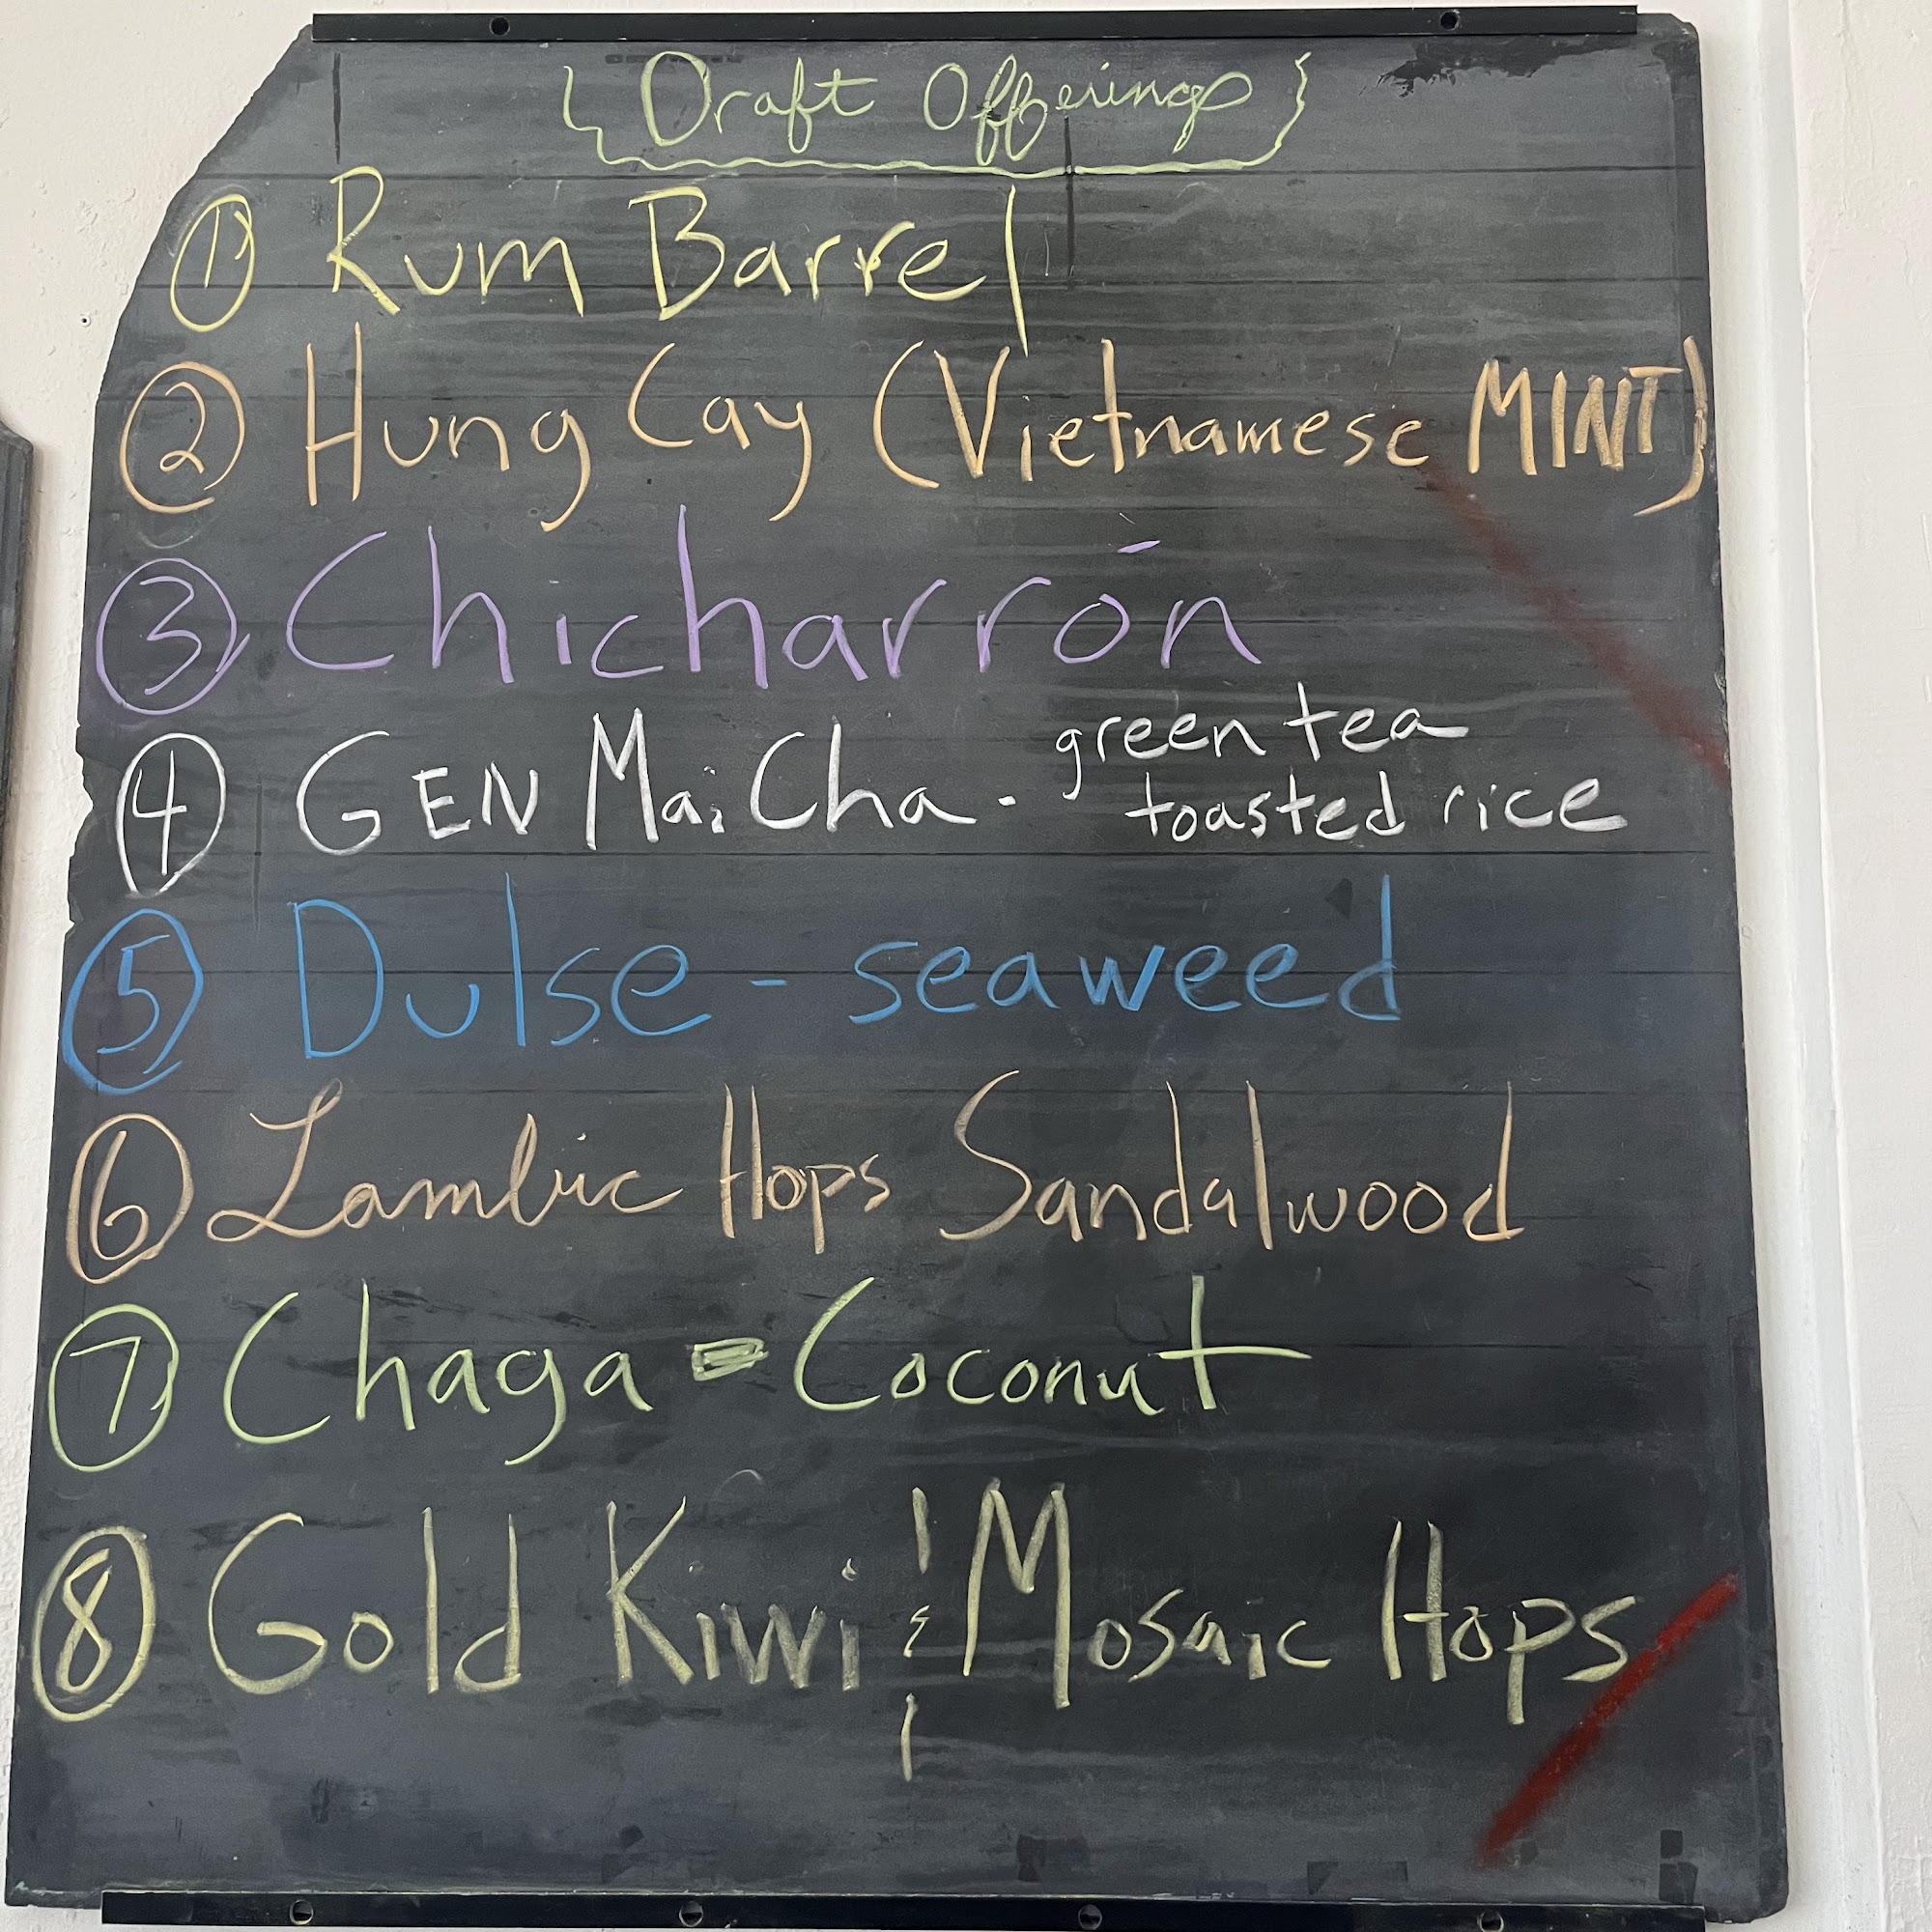 { Draft Offerings }
① Rum Barrel
② Hung Cay (Vietnamese MINT)
③ Chicharrón
④ GEN MaiCha - green tea
toasted rice
⑤ Dulse - seaweed
⑥ Lambic Hops Sandalwood
⑦ Chaga - Coconut
⑧ Gold Kiwi & Mosaic Hops